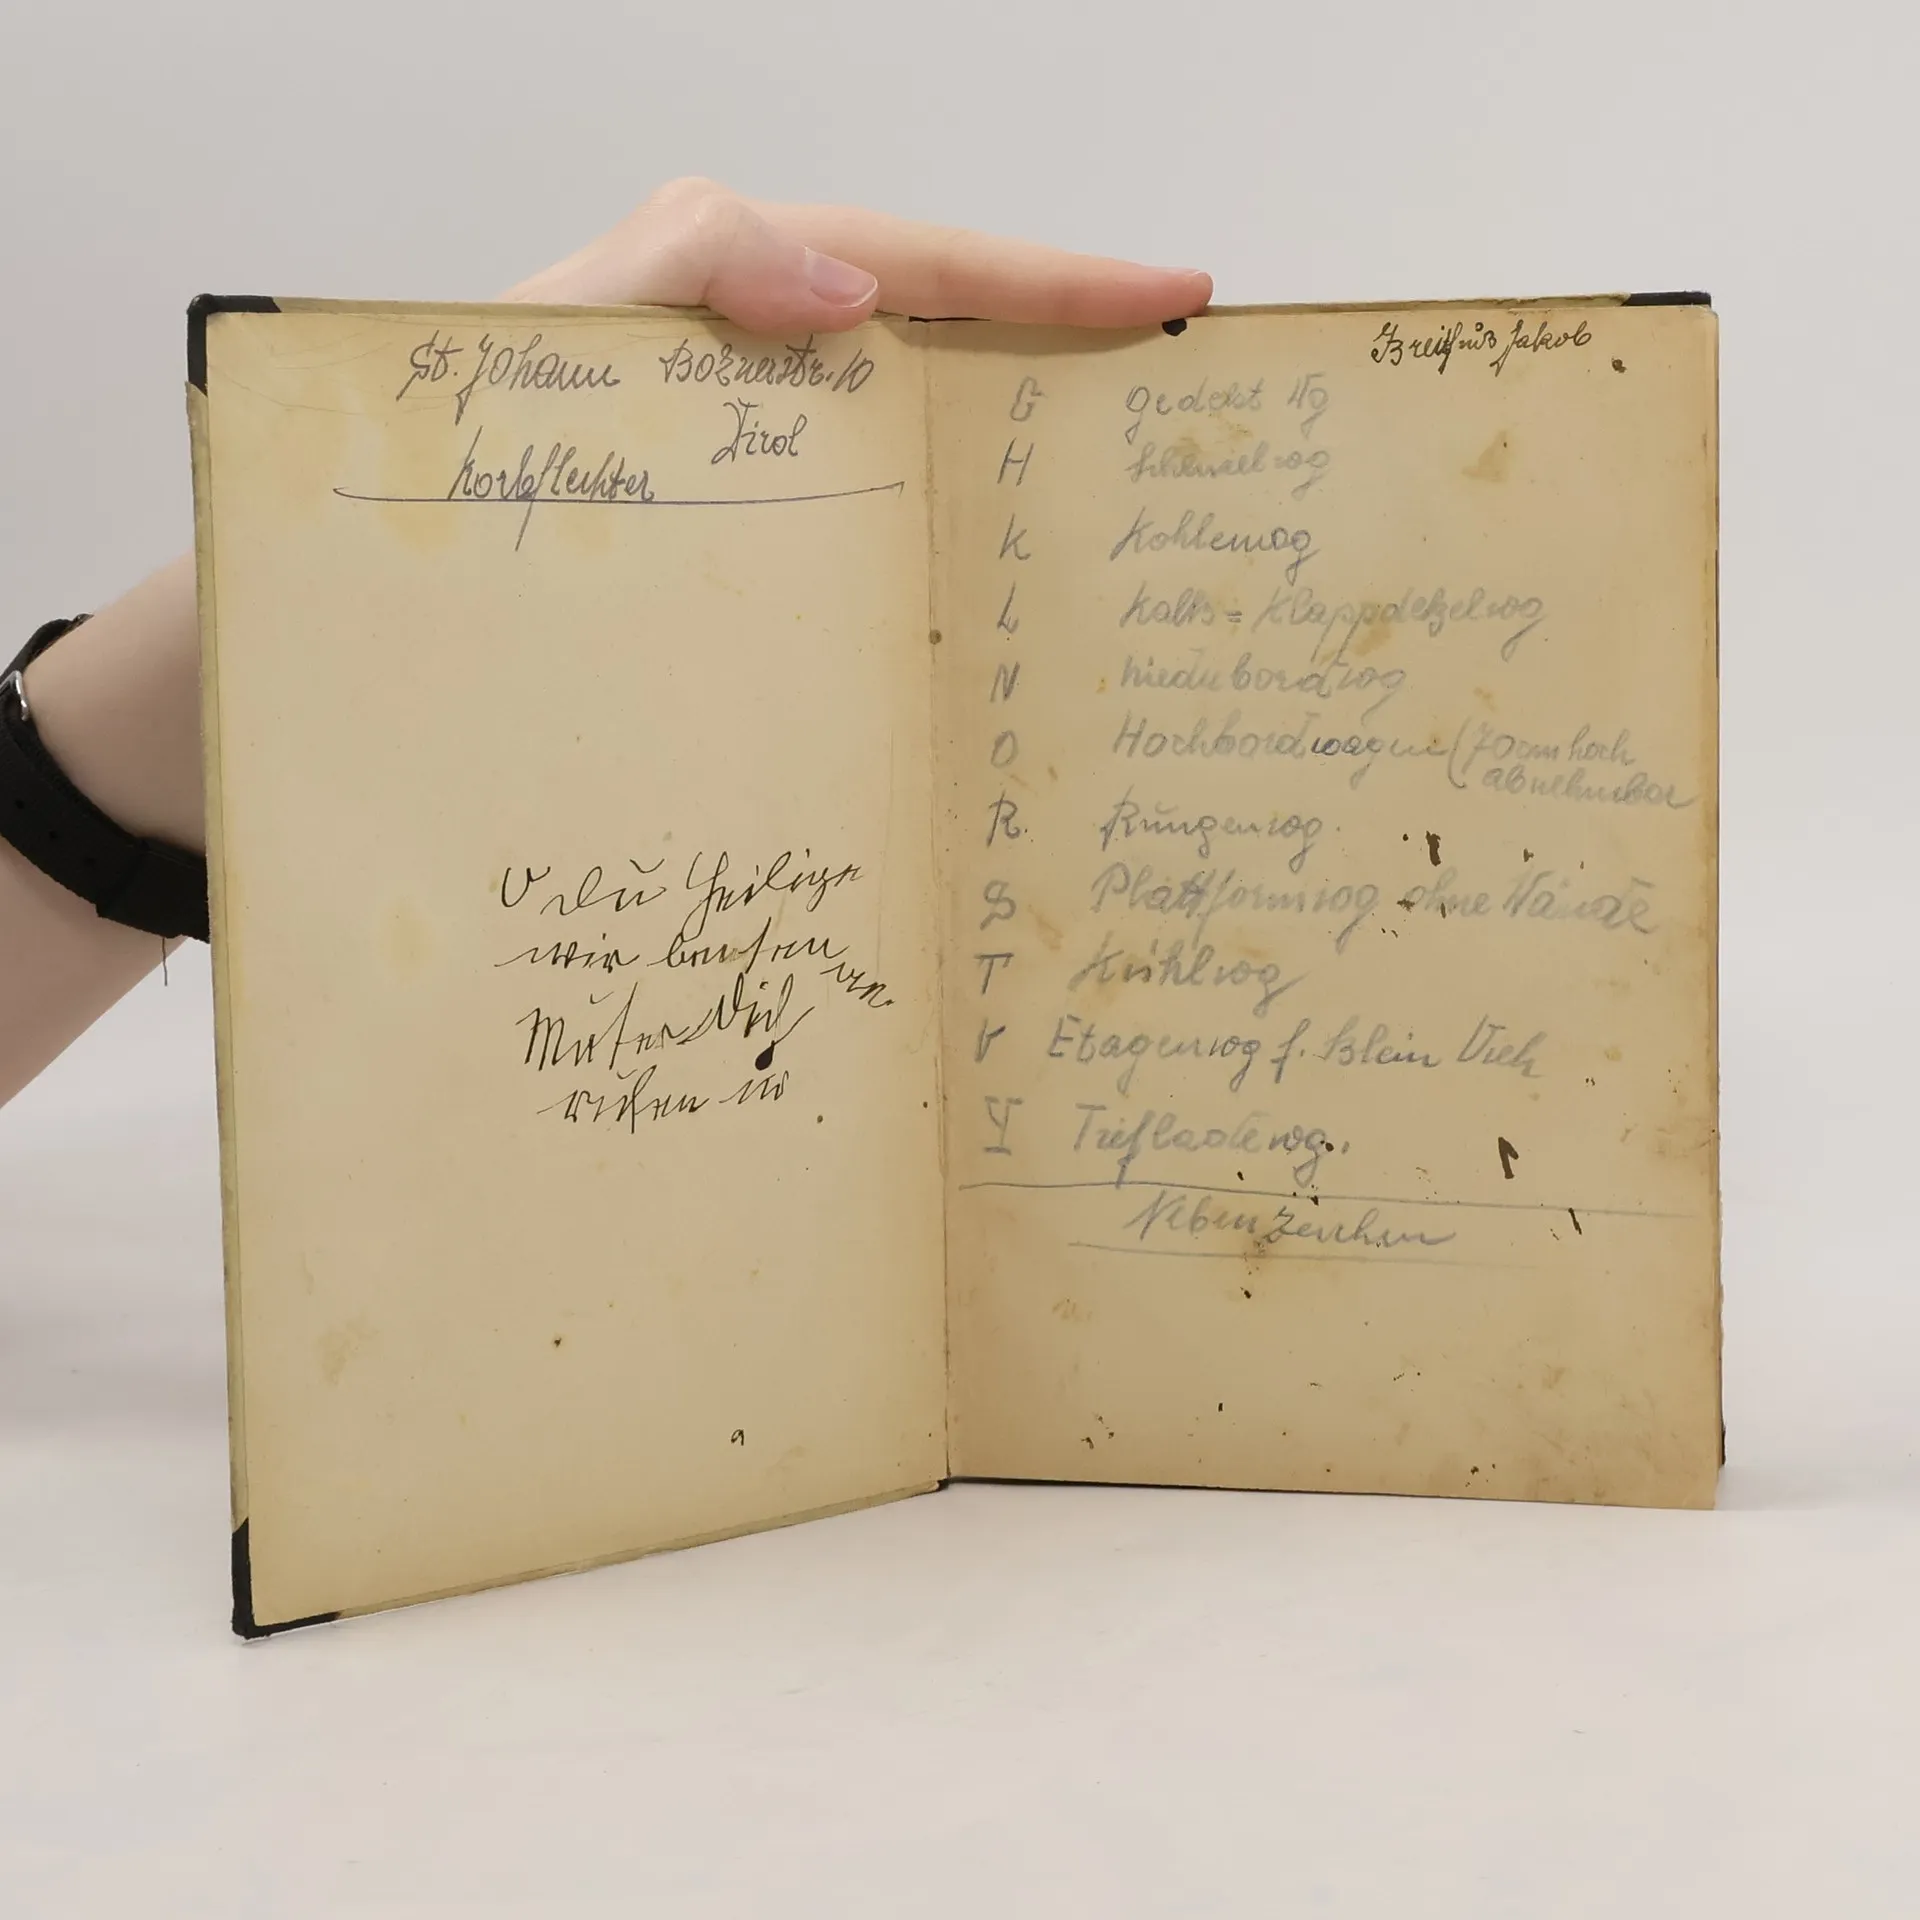 St. Johann Boznerstr. 10
Tirol
Korbflechter
O du heilige
wir
Muter Dich
rufen
a
Breitfuß Jakob
G gedekt Wg
H Schemelwg
K Kohlenwg
L Kalk= Klappdekelwg
N Niederbordwg
O Hochbordwagen (70 cm hoch
abnehmbar
R Rungenwg.
S Plattformwg ohne Wände
T Kühlwg
V Etagenwg f. Klein Vieh
Y Tiefladewg.
Neben Zeichen